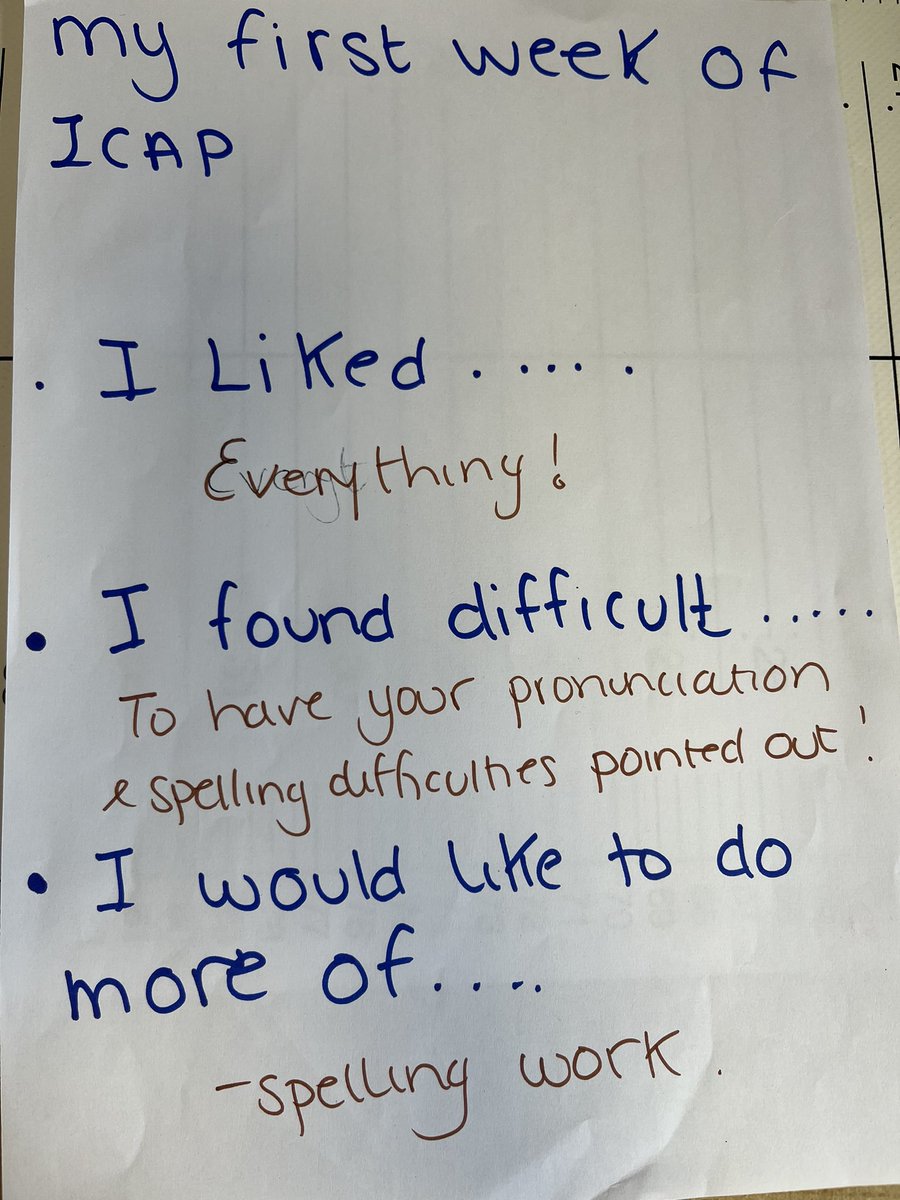 my first week of
ICAP
• I Liked .....
Everything!
• I found difficult .....
To have your pronunciation
& spelling difficulties pointed out!
• I would like to do
more of.....
- spelling work.